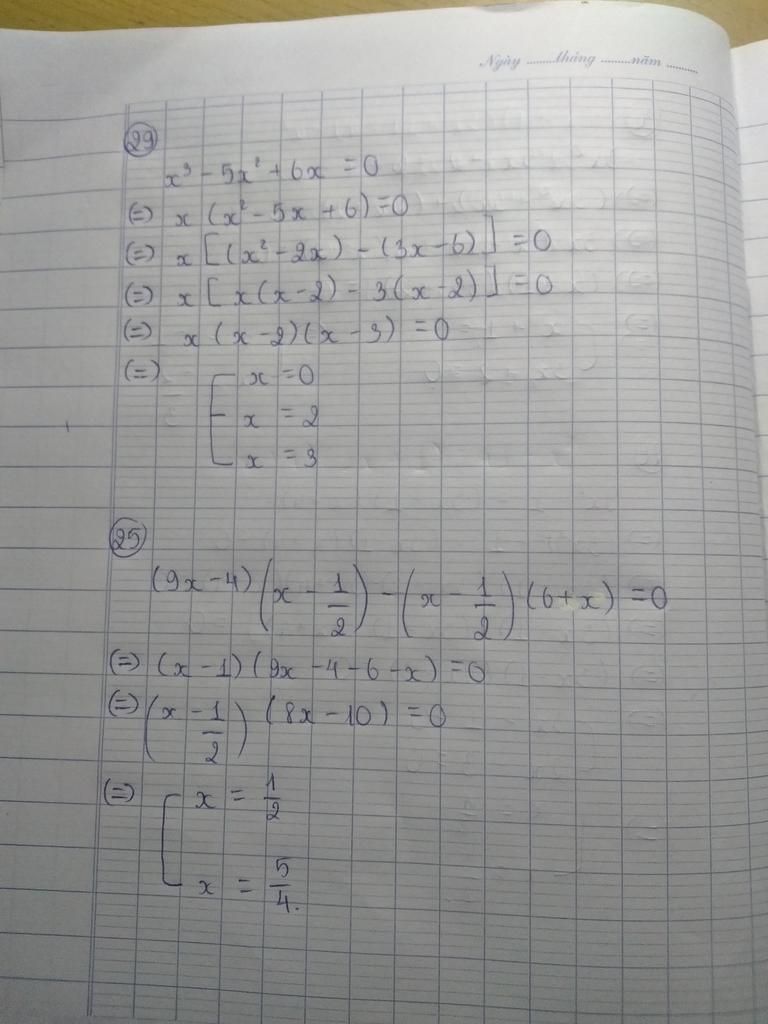 Ngày ........tháng ........năm ........
29
x³ - 5x² + 6x = 0
(=) x (x² - 5x + 6) = 0
(=) x [(x² - 2x) - (3x - 6)] = 0
(=) x [x(x - 2) - 3(x - 2)] = 0
(=) x (x - 2)(x - 3) = 0
(=) [ x = 0
x = 2
x = 3
25
(9x - 4)(x - 1/2) - (x - 1/2)(6 + x) = 0
(=) (x - 1)(9x - 4 - 6 - x) = 0
(=) (x - 1/2)(8x - 10) = 0
(=) [ x = 1/2
x = 5/4.